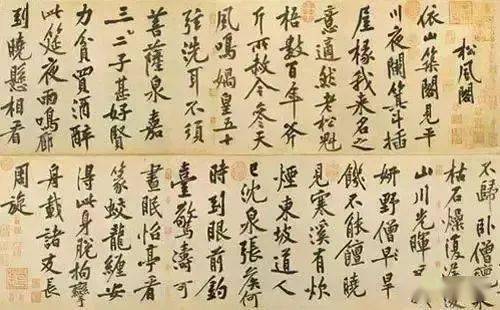 松風閣
依山築閣見平
川夜闌箕斗插
屋椽我來名之
意適然老松魁
梧數百年斧
斤所赦今參天
風鳴媧皇五十
弦洗耳不須
菩薩泉嘉
三二子甚好賢
力貧買酒醉
此筵夜雨鳴廊
到曉懸相看
不歸臥僧氈泉
枯石燥復潺
山川光暉
妍野僧早旱
饑不能饘曉
見寒溪有炊
煙東坡道人
已沈泉張侯何
時到眼前釣
臺驚濤可
晝眠怡亭看
篆蛟龍纏安
得此身脫拘攣
舟載諸友長
周旋